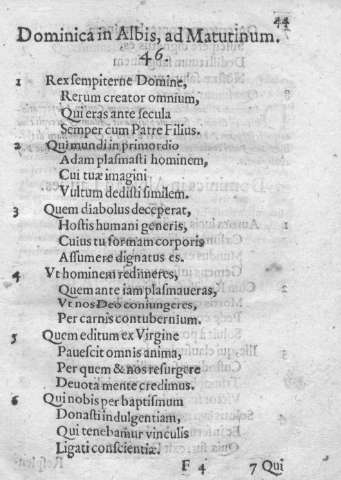 44
Dominica in Albis, ad Matutinum.
46.
1 Rex sempiterne Domine,
Rerum creator omnium,
Qui eras ante secula
Semper cum Patre Filius.
2 Qui mundi in primordio
Adam plasmasti hominem,
Cui tuæ imagini
Vultum dedisti similem.
3 Quem diabolus deceperat,
Hostis humani generis,
Cuius tu formam corporis
Assumere dignatus es.
4 Vt hominem redimeres,
Quem ante iam plasmaueras,
Vt nos Deo coniungeres,
Per carnis contubernium.
5 Quem editum ex Virgine
Pauescit omnis anima,
Per quem & nos resurgere
Deuota mente credimus.
6 Qui nobis per baptismum
Donasti indulgentiam,
Qui tenebamur vinculis
Ligati conscientiæ.
F 4 7 Qui